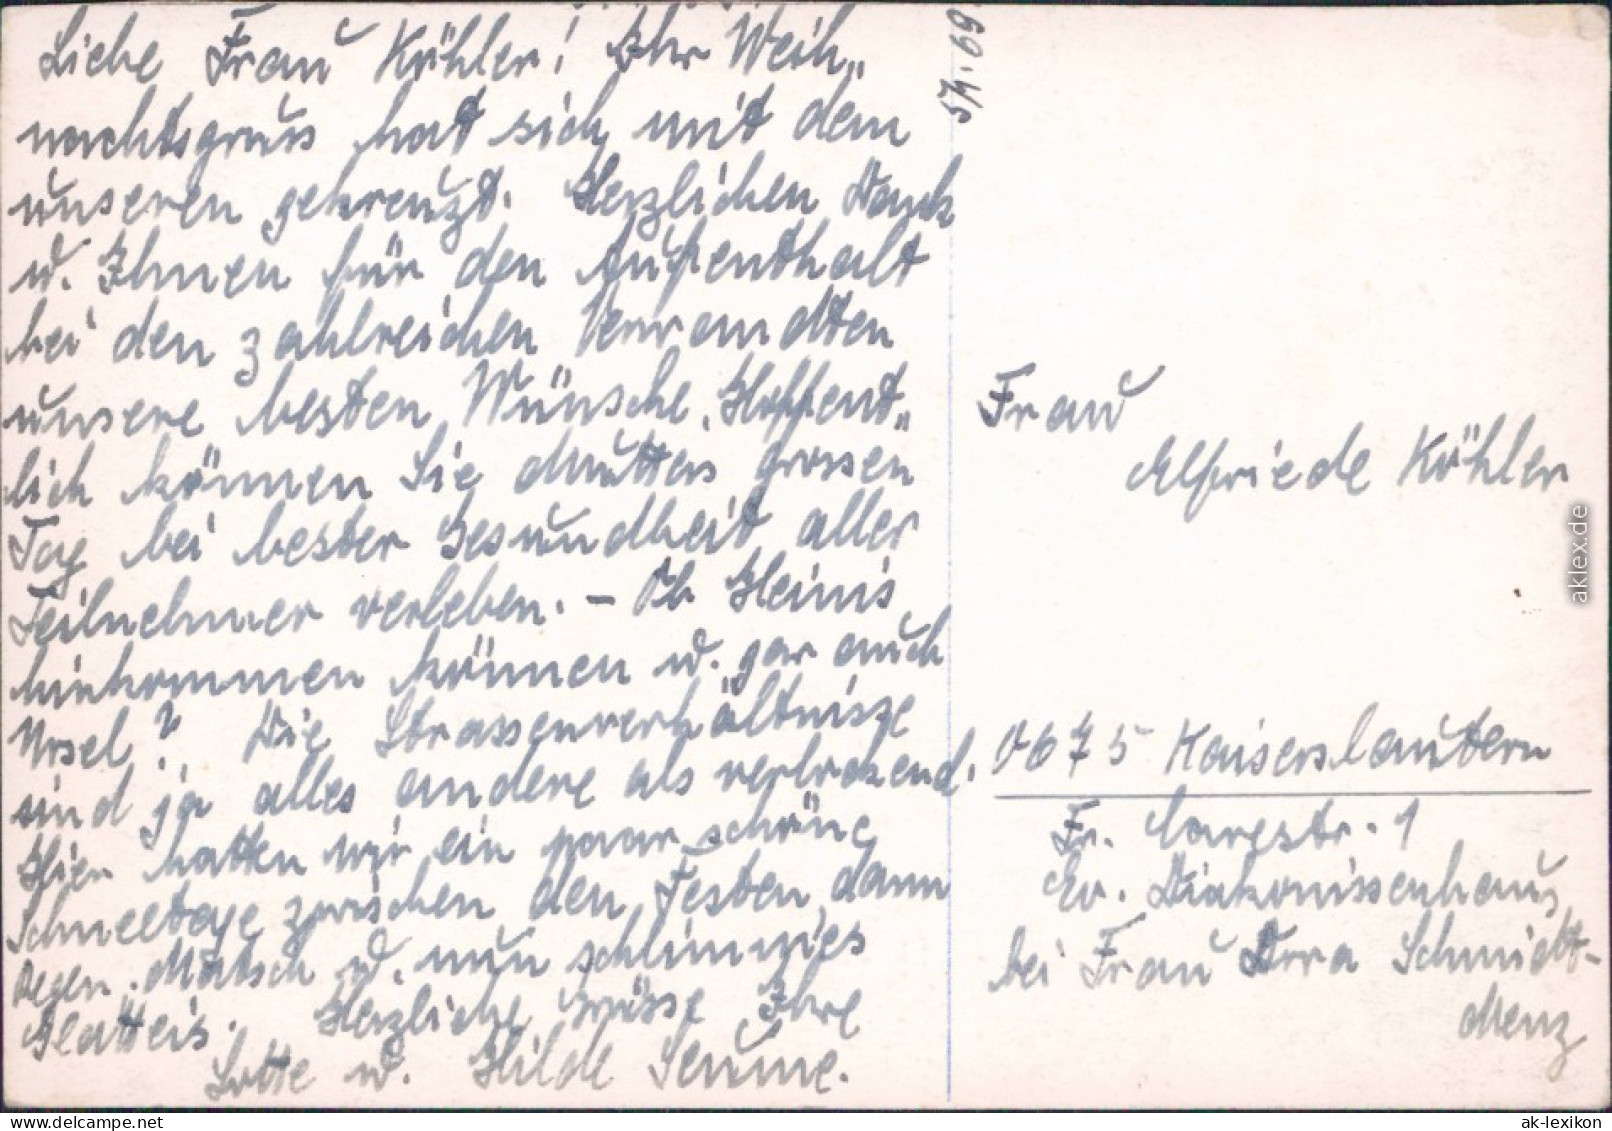 Liebe Frau Köhler! Ihr Weih„
nachtsgruss hat sich mit dem
unseren gekreuzt. Herzlichen Dank
u. Ihnen für den Aufenthalt
bei den zahlreichen Verwandten
unsere besten Wünsche. Hoffent„
lich können Sie Mutters grossen
Tag bei bester Gesundheit aller
Teilnehmer verleben. – Ob Heinis
hinkommen können u. gar auch
Ursel? Die Strassenverhältnisse
sind ja alles andere als verlockend.
Hier hatten wir ein paar schöne
Schneetage zwischen den Festen, dann
Regen, Matsch u. nun schlimmes
Glatteis. Herzliche Grüsse Ihre
Lotte u. Hilde Seume.
5/1.69
Frau
Elfriede Köhler
675 Kaiserslautern
Fr. Carestr. 1
Ev. Diakonissenhaus
bei Frau Dora Schmidt-
Menz
aklex.de
www.delcampe.net
ak-lexikon